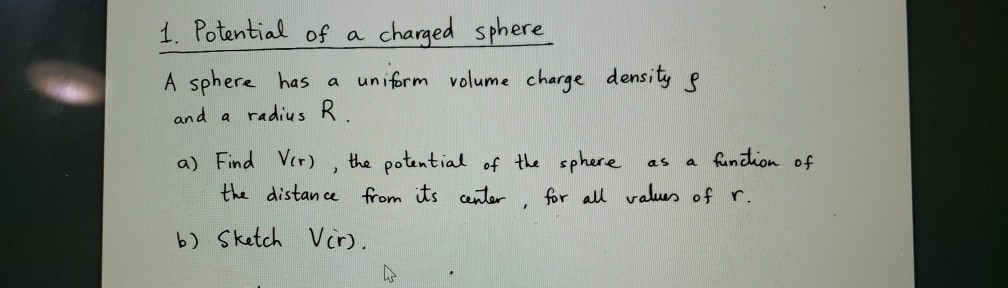 1. Potential of a charged sphere
A sphere has a uniform volume charge density ρ
and a radius R.
a) Find V(r), the potential of the sphere as a function of
the distance from its center, for all values of r.
b) Sketch V(r).